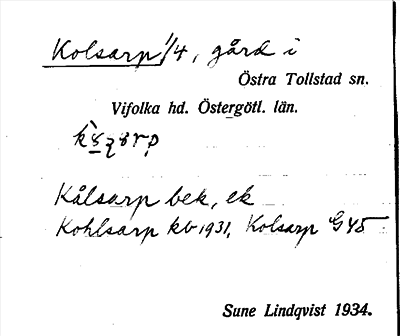 Kolsarp 1/4, gård i
Östra Tollstad sn.
Vifolka hd. Östergötl. län.
Kålsarp bek, ek
Kohlsarp kb 1931, Kolsarp G45
Sune Lindqvist 1934.